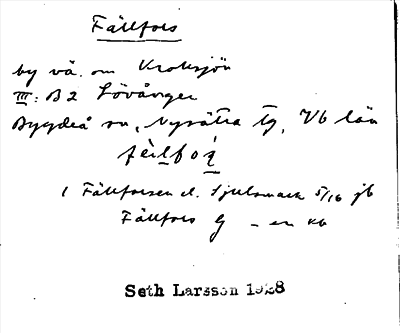 Fällfors
by vä. om Kroksjön
III: B 2 Lövånger
Bygdeå sn, Nysätra tg, Vb län
fèlfoş
1 Fällforsen el. Sjulsmark 5/16 jb
Fällfors g – en kb
Seth Larsson 1928